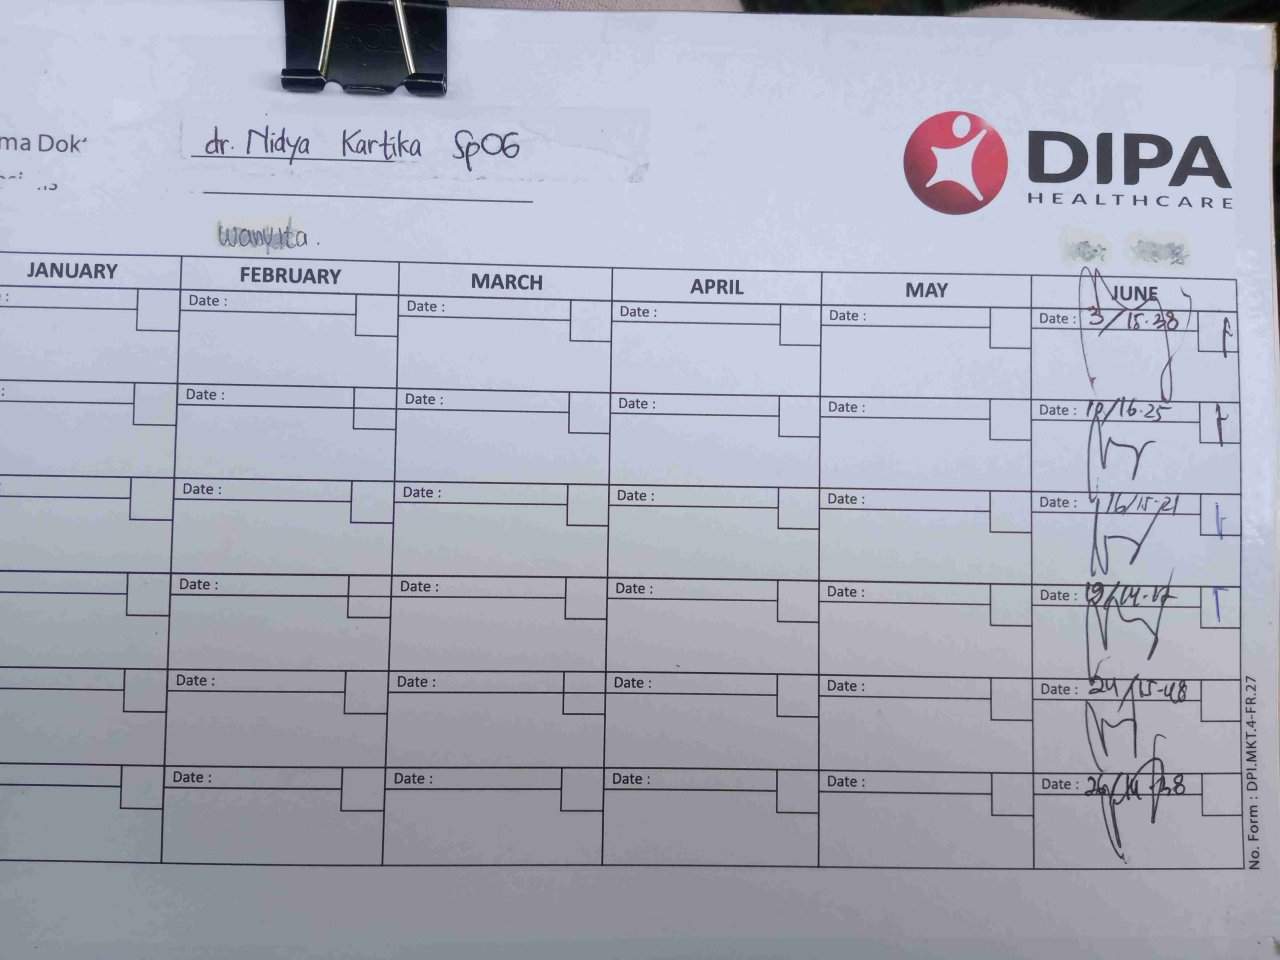 ma Dok
dr. Nidya Kartika SpOG
DIPA
HEALTHCARE
JANUARY FEBRUARY MARCH APRIL MAY JUNE
: Date : Date : Date : Date : Date : 3/15.38
: Date : Date : Date : Date : Date : 10/16.25
Date : Date : Date : Date : Date : 16/15-21
Date : Date : Date : Date : Date : 19/14-17
Date : Date : Date : Date : Date : 24/15-48
Date : Date : Date : Date : Date : 26/14-38
No. Form : DPI.MKT.4-FR.27